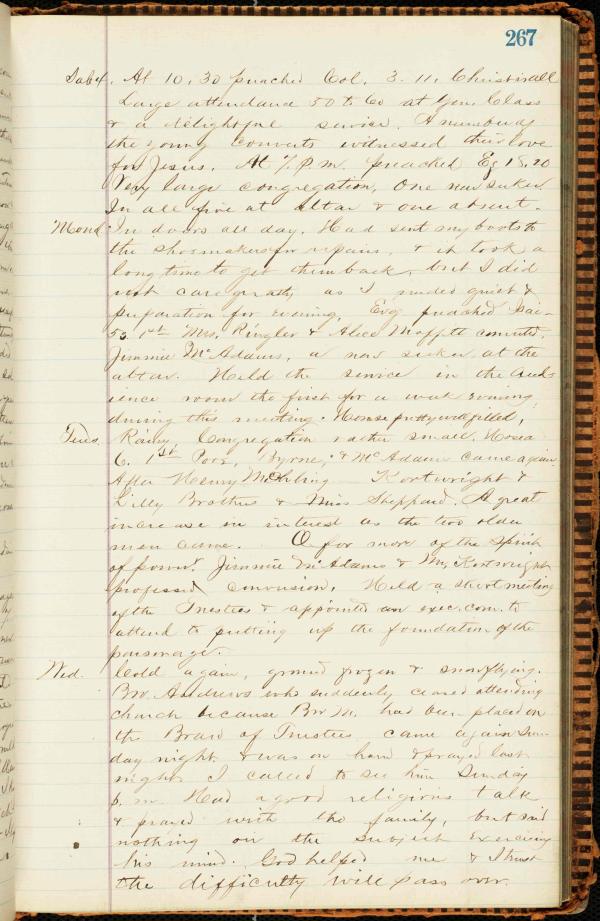 267
Sab 4. At 10,30 preached Col. 3.11, Christ is all
Large attendance 50 to 60 at Gen. Class
& a delightful service. A number of
the young converts witnessed their love
for Jesus. At 7. P.m. preached Ez 18.20
Very large congregation, One new seeker
In all five at Altar & one absent.
Mond. In doors all day. Had sent my boots to
the shoemakers for repairs, & it took a
long time to get them back, but I did
not care greatly as I needed quiet &
preparation for evening. Evg preached Isai-
53. 1st Mrs. Ringler & Alice Moffitt
Jimmie McAdams, a new seeker at the
altar. Held the service in the Aud-
ience room the first for a week evening
during this meeting. House pretty well filled,
Tues. Rainy, Congregation rather small. Hosea
6. 1st Poor, Byrne, & McAdams came again
After Henry Kortwright &
Lilly Brothers & Miss Sheppard. A great
increase in interest as the two older
men came. O for more of the Spirit
of power. Jimmie McAdams & Kortwright
professed conversion. Held a short meeting
of the Trustees & appointed an exec. com. to
attend to putting up the foundation of the
parsonage.
Wed. Cold again, ground frozen & snow flying.
Bro. Andrews who suddenly ceased attending
church because Bro M. had been placed on
the Board of Trustees came again Sun-
day night & was on hand & prayed last
night. I called to see him Sunday
p.m. Had a good religious talk
& prayed with the family, but said
nothing on the subject exercising
his mind. God helped me & I trust
the difficulty will pass over.